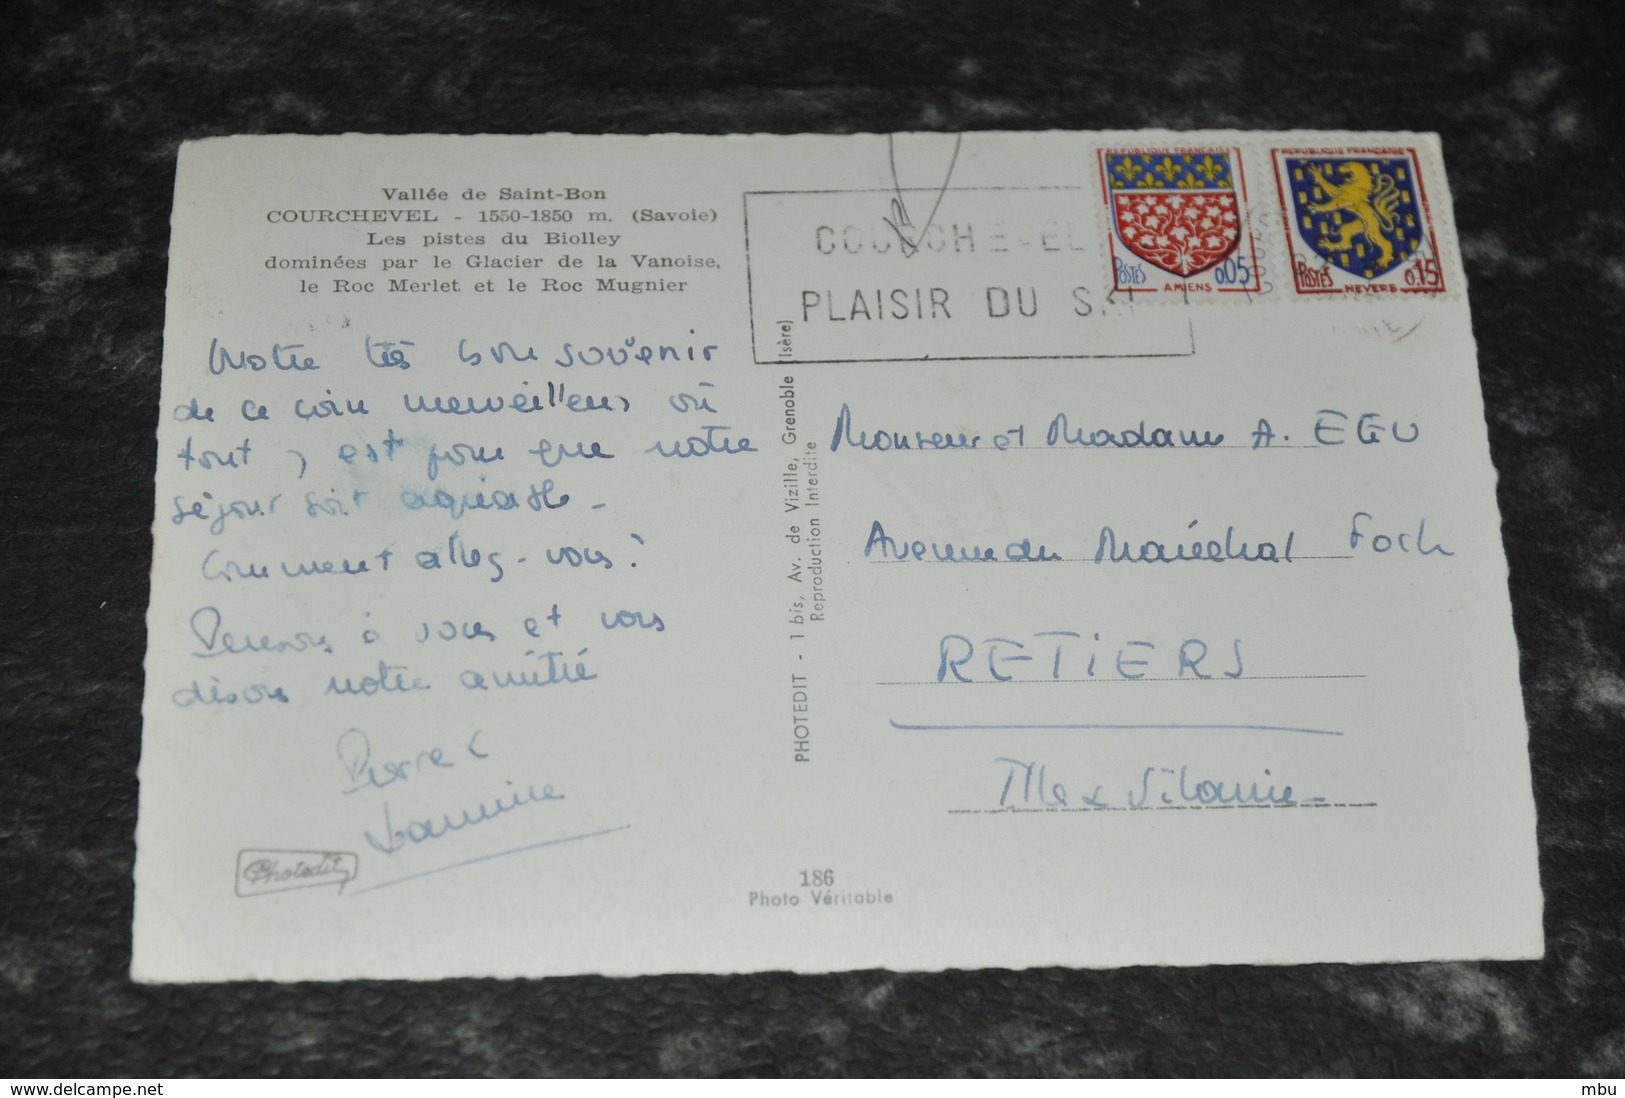 Vallée de Saint-Bon
COURCHEVEL - 1550-1850 m. (Savoie)
Les pistes du Biolley
dominées par le Glacier de la Vanoise,
le Roc Merlet et le Roc Mugnier
Notre très bon souvenir
de ce coin merveilleux où
tout, est pour que notre
séjour soit agréable -
Comment allez-vous?
Pensons à vous et vous
disons notre amitié
Pierre &
Photedit
PHOTEDIT - 1 bis, Av. de Vizille, Grenoble (Isère)
Reproduction Interdite
186
Photo Véritable
COURCHEVEL
PLAISIR DU SKI
REPUBLIQUE FRANÇAISE
POSTES 0,05
AMIENS
REPUBLIQUE FRANÇAISE
POSTES 0,15
NEVERS
Monsieur et Madame A. EGU
Avenue du Maréchal Foch
RETIERS
Ille & Vilaine -
www.delcampe.net
mbu